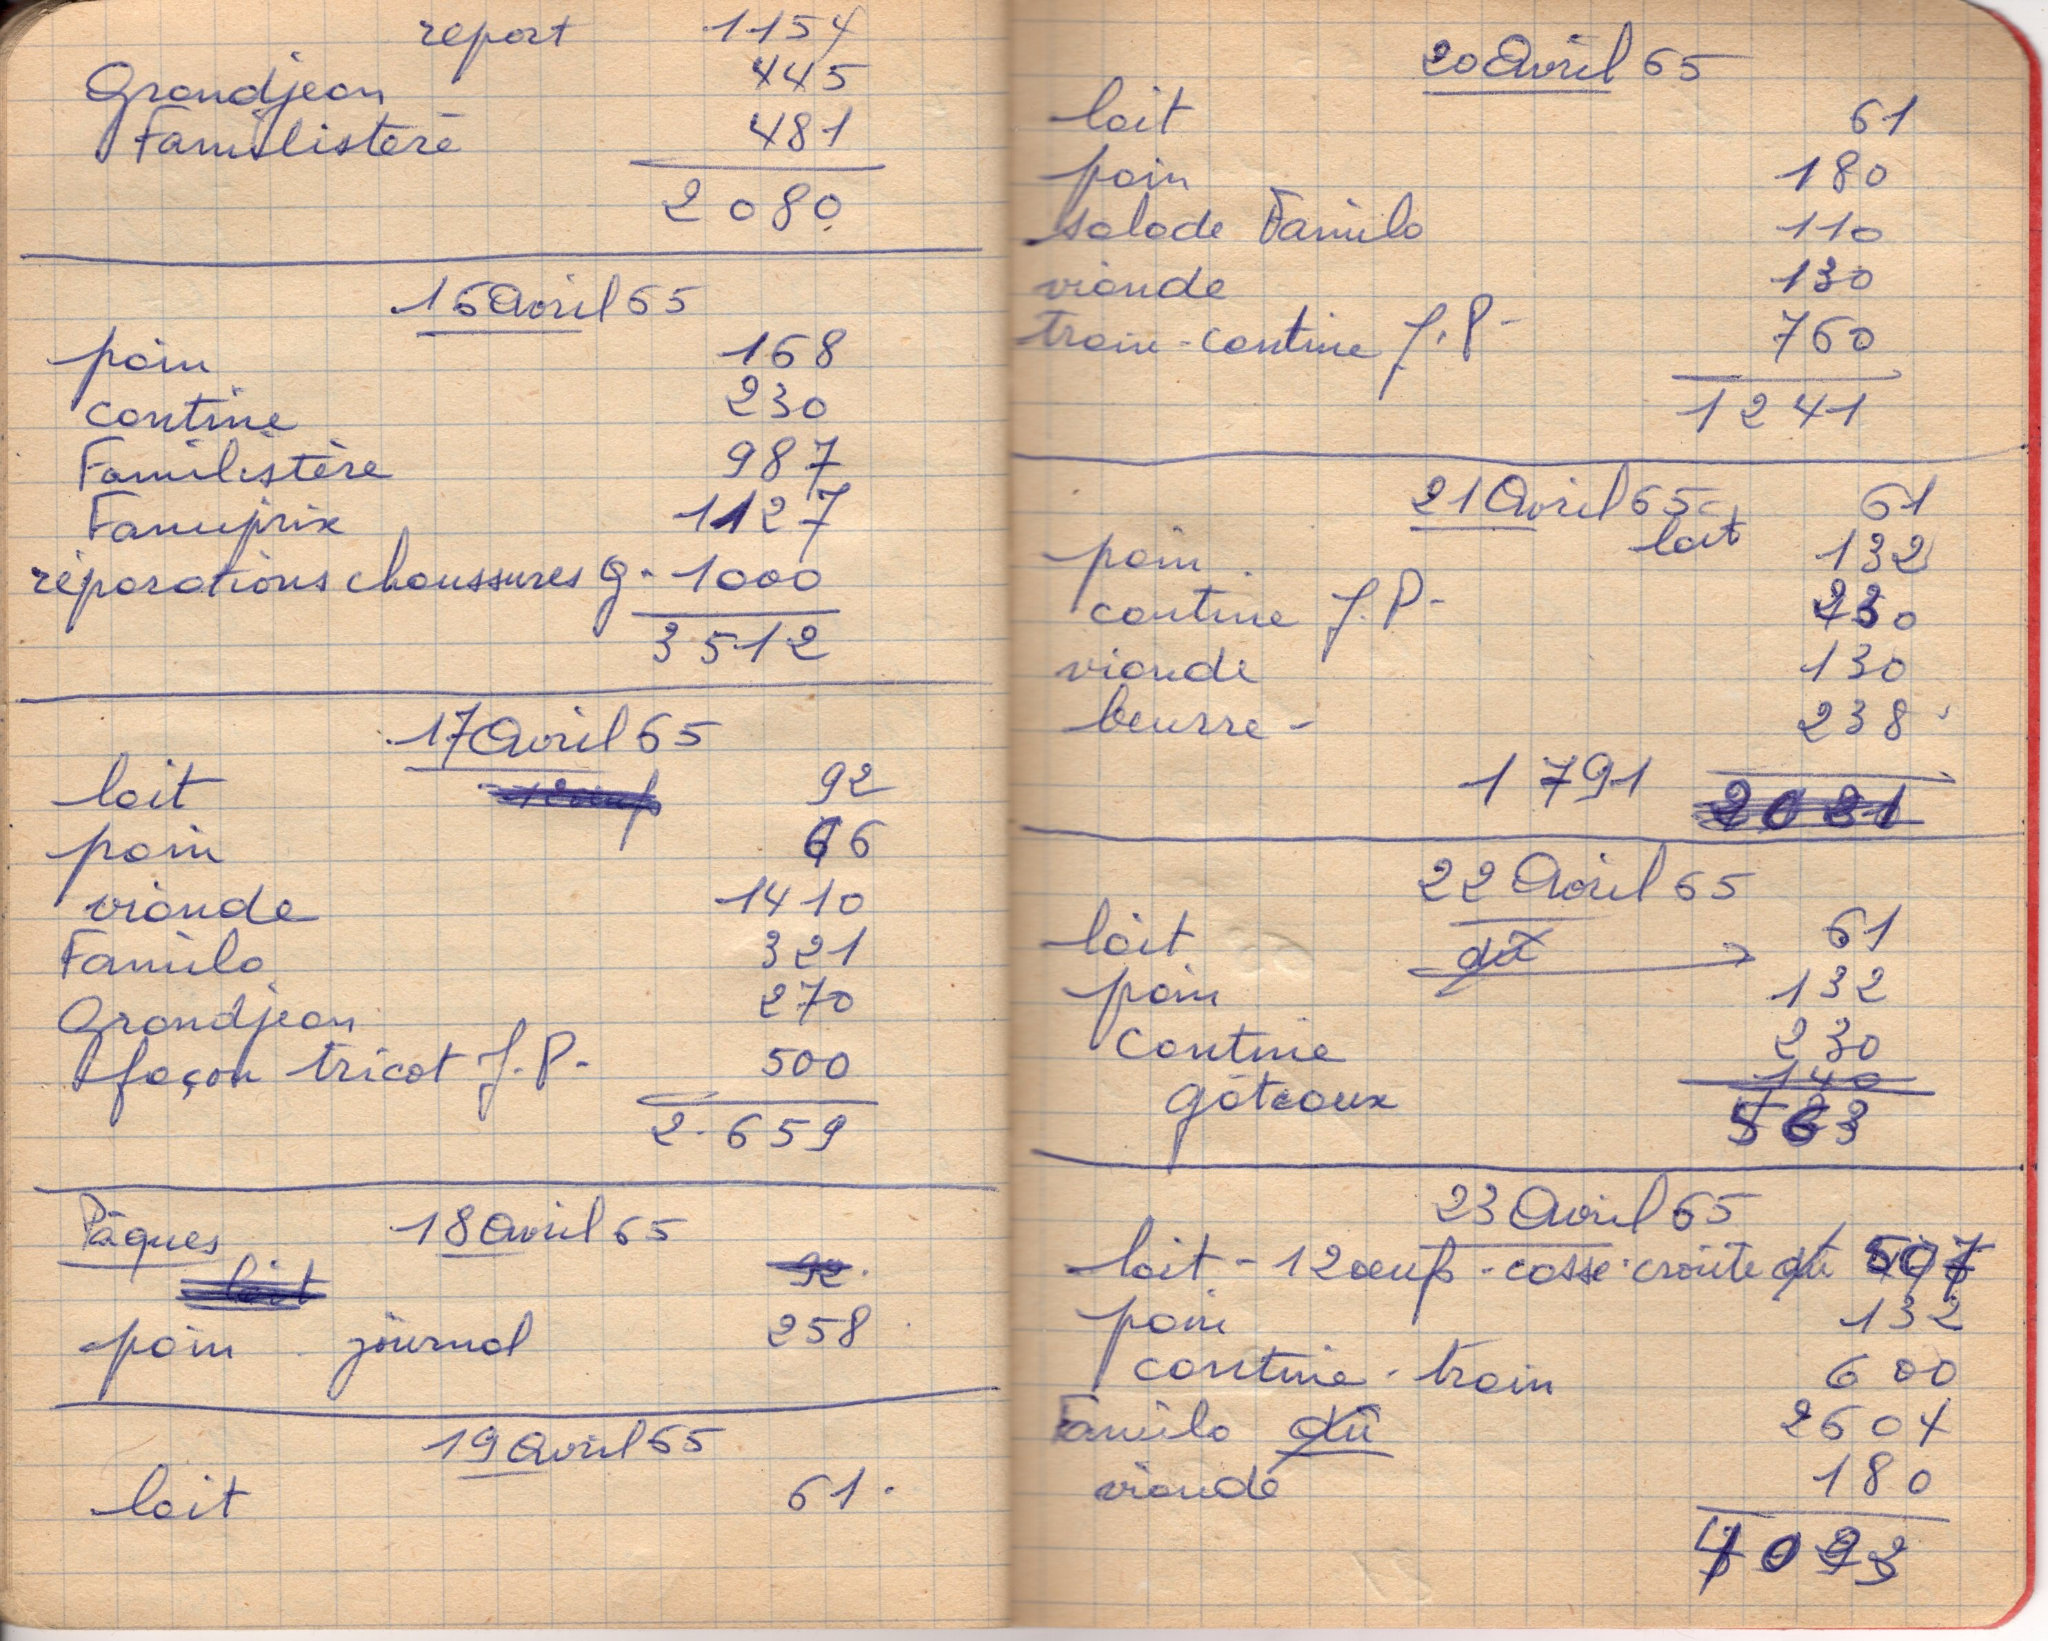 report 1154
Grandjean 445
Familistère 481
2080
16 Avril 65
pain 168
cantine 230
Familistère 987
Famiprix 1127
réparations chaussures G. 1000
3512
17 Avril 65
lait 92
pain 66
viande 1410
Familo 321
Grandjean 270
façon tricot J.P. 500
2.659
Pâques 18 Avril 65
lait 92.
pain journal 258
19 Avril 65
lait 61.
20 Avril 65
lait 61
pain 180
salade Familo 110
viande 130
train-cantine J.P- 760
1241
21 Avril 65
lait 61
pain 132
cantine J.P- 230
viande 130
beurre- 238
1791 2021
22 Avril 65
lait dû 61
pain 132
cantine 230
gâteaux 140
563
23 Avril 65
lait - 12 oeufs - casse-croûte dû 507
pain 132
cantine - train 600
Familo dû 2604
viande 180
4023